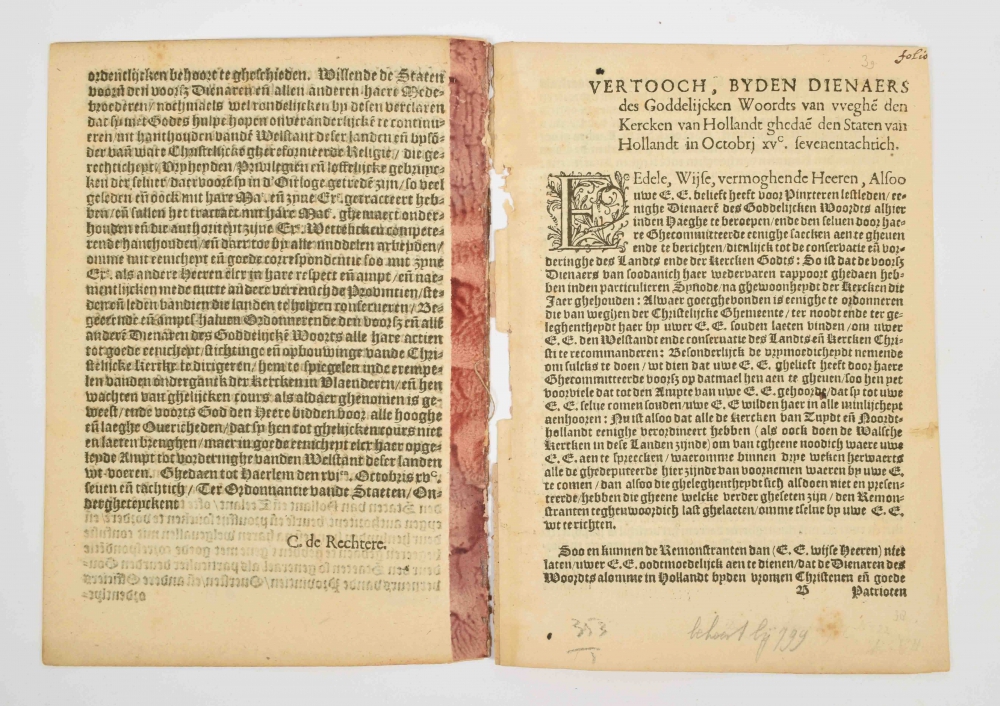 ordentlijcken behoort te gheschieden. Willende de Staten
voorñ den voorsz Dienaren eñ allen anderen haere Mede-
broederen / nochmaels wel rondelijcken by desen verclaren
dat sy met Godes hulpe hopen onveranderlijcke te continu-
eren int hanthouden vandē Welstant deser landen eñ byso-
der van ware Christelijcke ghereformeerde Religie / die ge-
rechticheyt / Vryheyden / Privilegien eñ loffelijcke gebruyc-
ken der selver / daer voor sy in d'Oirloge getredē zijn / so veel
geleden eñ oock met hare Maᵗ. eñ zijne Exᵉ. getracteert heb-
ben / eñ sullen het tractaet met hare Maᵗ. ghemaect onder-
houden eñ die authoriteyt zijne Exᵉ. Wettelicken compete-
rende hanthouden / eñ daer toe by alle middelen arbeyden /
omme met eenicheyt eñ goede correspondentie soo met zijne
Exᵉ. als andere Heeren elcx in hare respect eñ ampt / eñ nae-
mentlijcken mede mitte andere vereenichde Provintien / ste-
den eñ leden van dien die landen te helpen conserveren / Be-
geerende eñ ampts halven Ordonnerende den voorsz eñ alle
anderē Dienaren des Goddelijckē Woorts alle hare actien
tot goede eenicheyt / stichtinge eñ opbouwinge vande Chri-
stelijcke kercke te dirigeren / hem te spiegelen inde exempe-
len vanden onderganck der Kercken in Vlaenderen / eñ hen
wachten van ghelijcken cours als aldaer ghenomen is ge-
weest / ende voorts God den Heere bidden voor alle hooghe
eñ laeghe Overicheden / dat sy hen tot ghelijcken cours niet
en laeten brenghen / maer in goede eenicheyt elcx haer opge-
leyde Ampt tot vorderinghe vanden Welstant deser landen
wt voeren. Ghedaen tot Haerlem den xviᵉⁿ. Octobris xvᶜ.
seven eñ tachtich / Ter Ordonnantie vande Staeten / On-
derghetekent
C. de Rechtere.
folio
39
VERTOOCH, BYDEN DIENAERS
des Goddelijcken Woordts van vveghē den
Kercken van Hollandt ghedaē den Staten van
Hollandt in Octobrj xvᶜ. sevenentachtich.
EEdele, Wijse, vermoghende Heeren, Alsoo
uwe E. E. belieft heeft voor Pinxteren lestleden / ee-
nighe Dienaerē des Goddelijcken Woordts alhier
inden Haeghe te beroepen / ende den selven door hae-
re Ghecommitteerde eenighe saecken aen te gheven
ende te berichten / dienlijck tot de conservatie eñ vor-
deringhe des Landts ende der Kercken Godts: So ist dat de voorsz
Dienaers van soodanich haer wedervaren rapport ghedaen heb-
ben inden particulieren Synode / na ghewoonheydt der Kercken dit
Jaer ghehouden: Alwaer goetghevonden is eenighe te ordonneren
die van weghen der Christelijcke Ghemeente / ter noodt ende ter ge-
leghentheydt haer by uwer E. E. souden laeten vinden / om uwer
E. E. den Welstandt ende conservatie des Landts eñ Kercken Chri-
sti te recommanderen: Besonderlijck de vrymoedicheydt nemende
om sulcks te doen / wt dien dat uwe E. E. ghelieft heeft door haere
Ghecommitteerde voorsz op datmael hen aen te gheven / soo hen yet
voorviele dat tot den Ampte van uwe E. E. gehoorde / dat sy tot uwe
E. E. selve comen souden / uwe E. E. wilden haer in alle minlijcheyt
aenhooren: Nu ist alsoo dat alle de Kercken van Zuydt eñ Noordt-
hollandt eenighe verordineert hebben (als oock doen de Walsche
Kercken in dese Landen zijnde) om van tgheene noodich waere uwe
E. E. aen te spreecken / waeromme binnen drye weken herwaerts
alle de ghedeputeerde hier zijnde van voornemen waeren by uwe E. E.
te comen / dan alsoo die gheleghentheydt sich alsdoen niet en presen-
teerde / hebben die gheene welcke verder gheseten zijn / den Remon-
stranten teghenwoordich last ghelaeten / omme tselve by uwe E. E.
wt te richten.
Soo en kunnen de Remonstranten dan (E. E. wijse Heeren) niet
laten / uwer E. E. oodtmoedelijck aen te dienen / dat de Dienaren des
Woordts alomme in Hollandt byden vromen Christenen eñ goede
B Patrioten
353
behoort bij 799